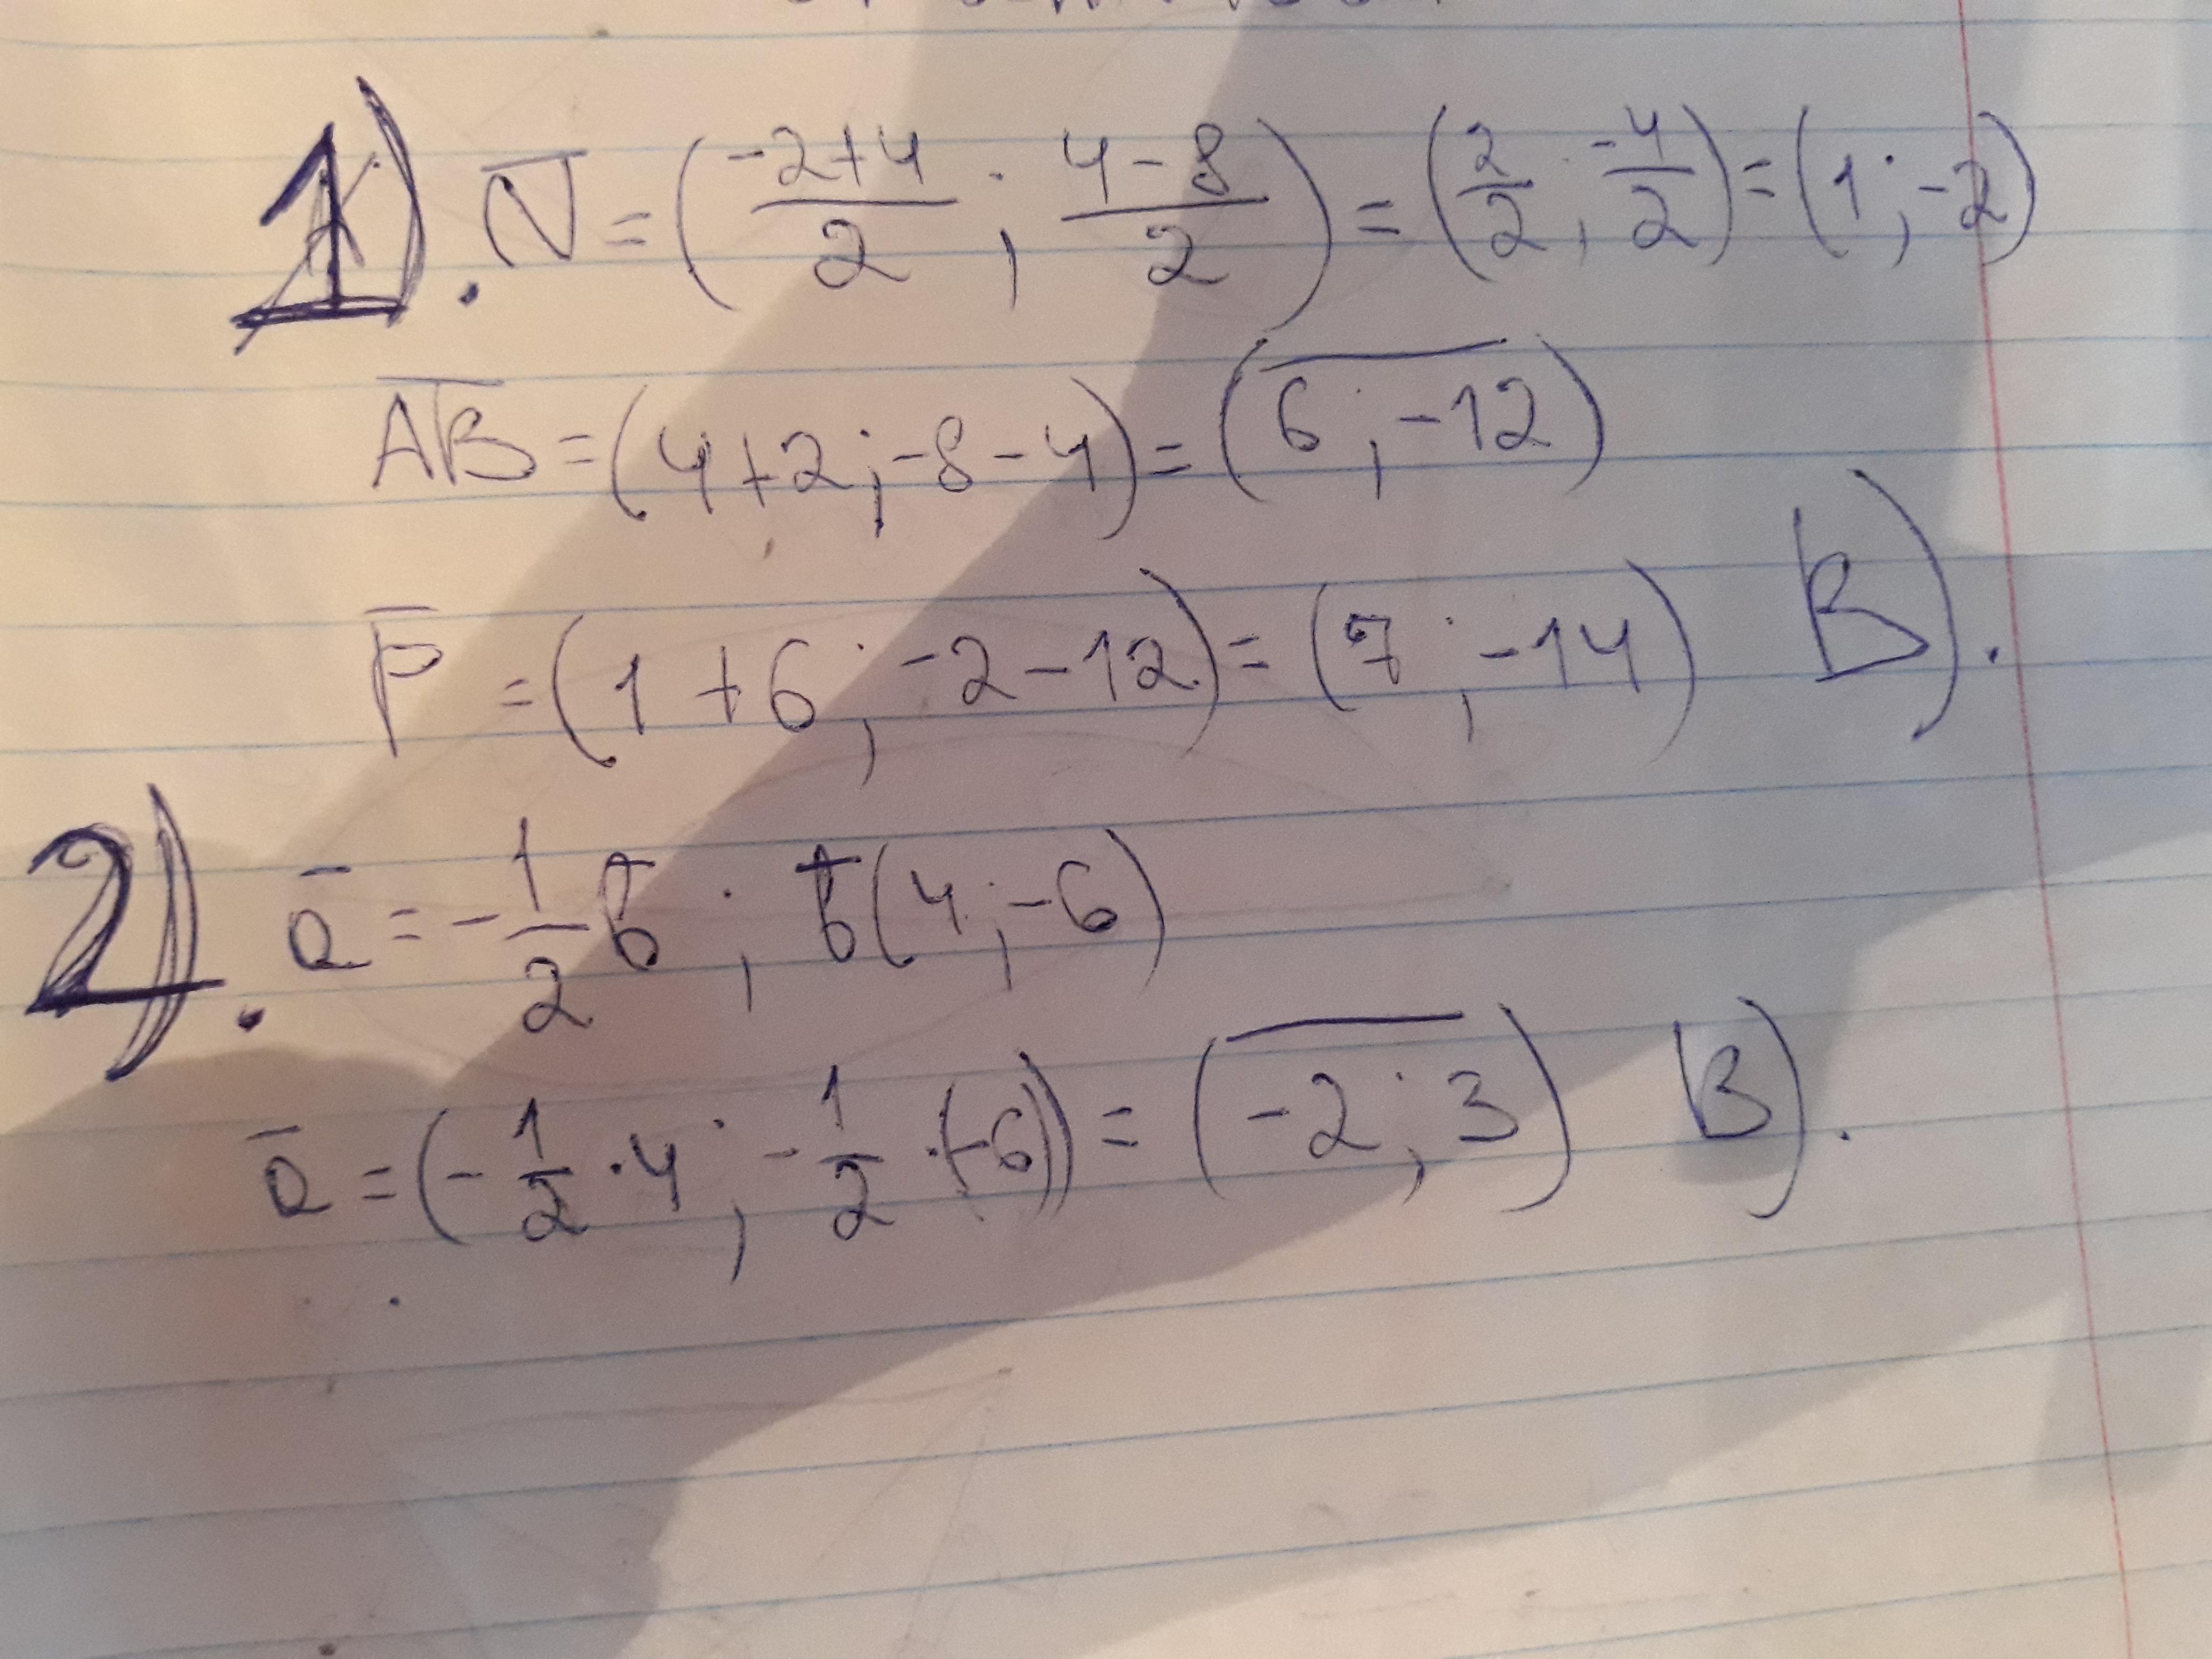 1). N̅ = (-2+4/2 ; 4-8/2) = (2/2 ; -4/2) = (1 ; -2)
A̅B̅ = (4+2 ; -8-4) = (6 ; -12)
P̅ = (1+6 ; -2-12) = (7 ; -14) В).
2). a̅ = -1/2 b̅ ; b̅(4 ; -6)
a̅ = (-1/2·4 ; -1/2·(-6)) = (-2 ; 3) В).